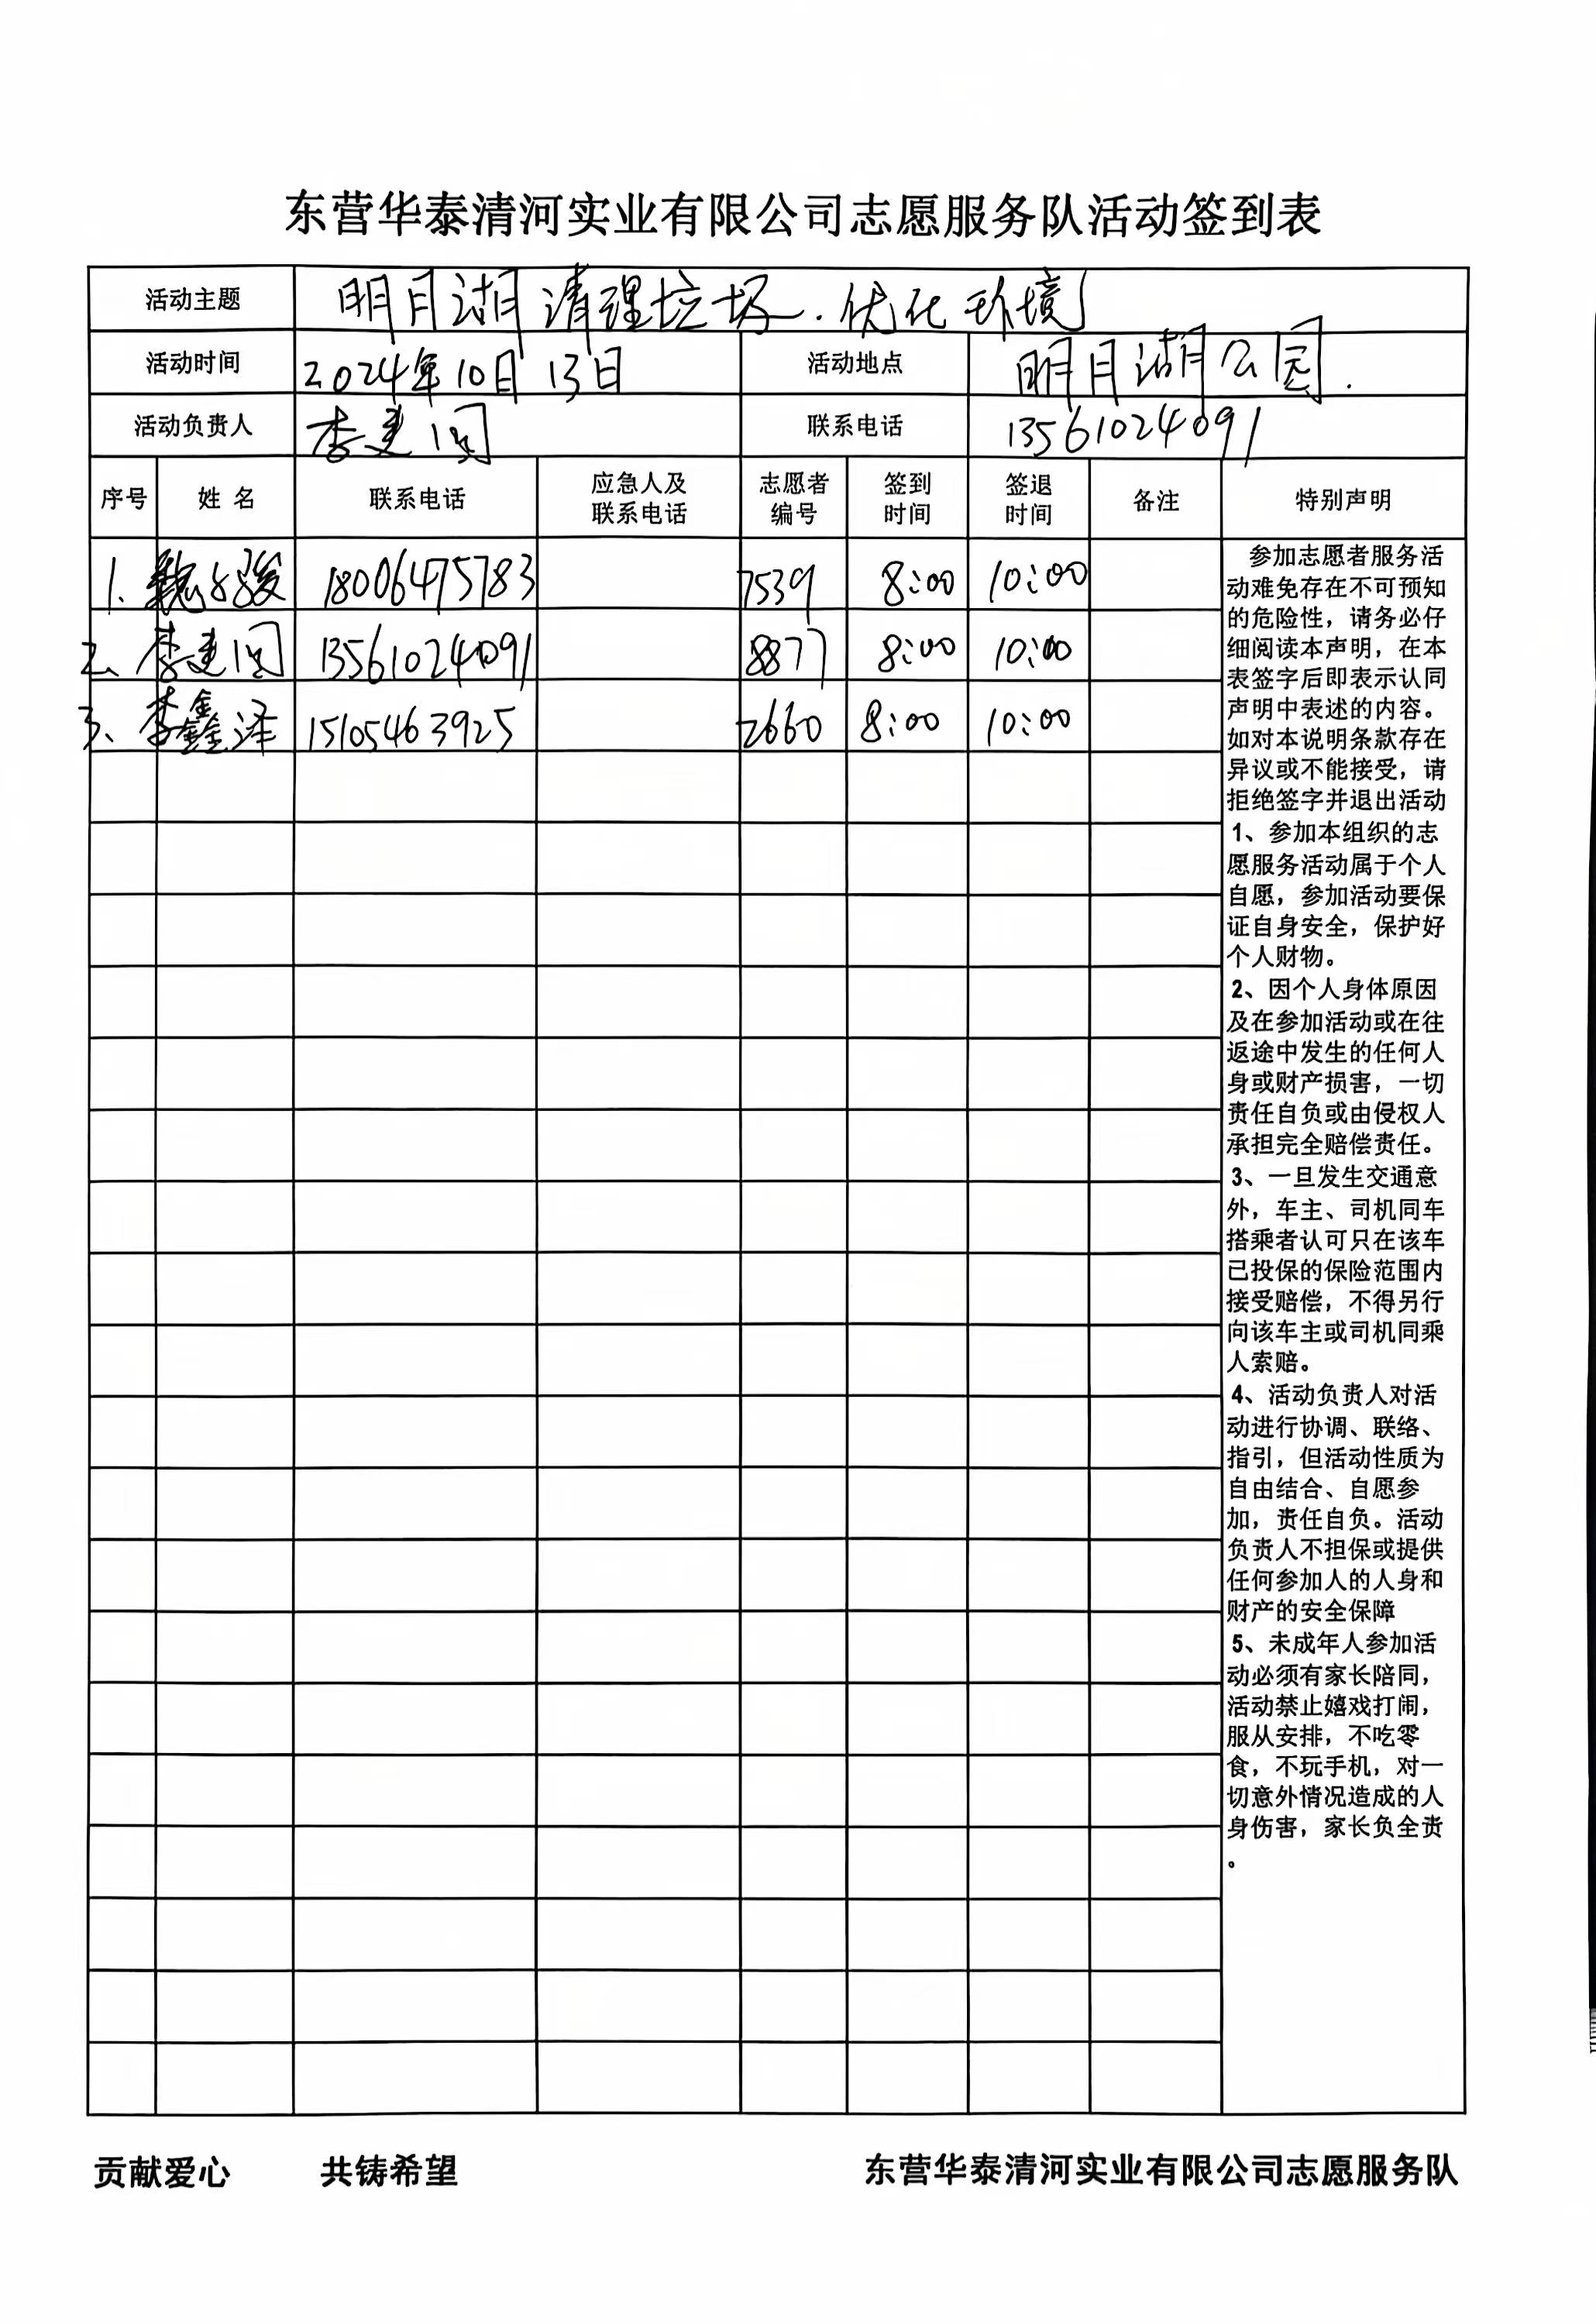 东营华泰清河实业有限公司志愿服务队活动签到表
活动主题 明月湖清理垃圾.优化环境
活动时间 2024年10月13日 活动地点 明月湖公园.
活动负责人 李建 联系电话 13561024091
序号 姓名 联系电话 应急人及联系电话 志愿者编号 签到时间 签退时间 备注 特别声明
1. 魏 18006475783 7539 8:00 10:00
2、 李建 13561024091 8877 8:00 10:00
3、 李鑫泽 15105463925 2660 8:00 10:00
参加志愿者服务活
动难免存在不可预知
的危险性，请务必仔
细阅读本声明，在本
表签字后即表示认同
声明中表述的内容。
如对本说明条款存在
异议或不能接受，请
拒绝签字并退出活动
1、参加本组织的志
愿服务活动属于个人
自愿，参加活动要保
证自身安全，保护好
个人财物。
2、因个人身体原因
及在参加活动或在往
返途中发生的任何人
身或财产损害，一切
责任自负或由侵权人
承担完全赔偿责任。
3、一旦发生交通意
外，车主、司机同车
搭乘者认可只在该车
已投保的保险范围内
接受赔偿，不得另行
向该车主或司机同乘
人索赔。
4、活动负责人对活
动进行协调、联络、
指引，但活动性质为
自由结合、自愿参
加，责任自负。活动
负责人不担保或提供
任何参加人的人身和
财产的安全保障
5、未成年人参加活
动必须有家长陪同，
活动禁止嬉戏打闹，
服从安排，不吃零
食，不玩手机，对一
切意外情况造成的人
身伤害，家长负全责
。
贡献爱心 共铸希望 东营华泰清河实业有限公司志愿服务队